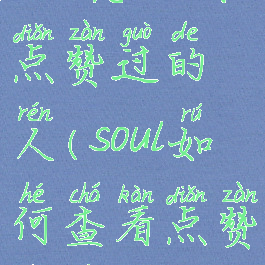 diǎn zàn guò de
点赞过的
rén rú
人(soul如
hé chá kàn diǎn zàn
何查看点赞